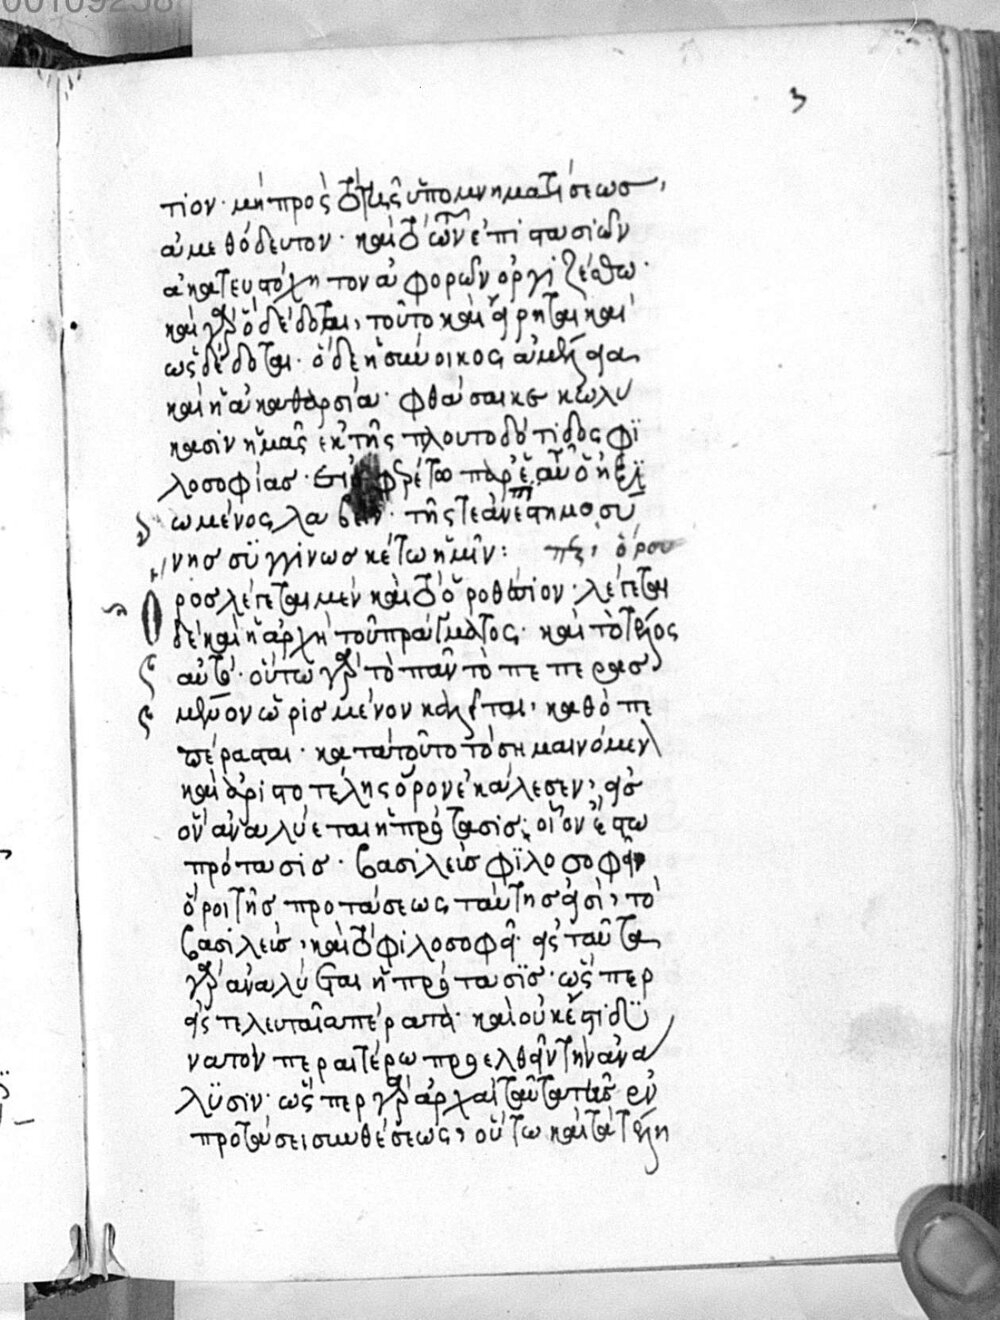 00109258
3
τίον· μὴ πρὸς τὸ τῆς ὑπομνηματίσεως,
ἀμεθόδευτον· καὶ τὸ τῶν ἐπιστασιῶν
ἀφορῶν ὀργιζέσθω·
καὶ γὰρ ὃ δέδοται, τοῦτο καὶ εἴρηται καὶ
ὡς δέδοται· ὁ δὲ ἡ σύνοικος
καὶ ἡ ἀκαθαρσία· φθάσαι κεκωλύ
κασιν ἡμᾶς ἐκ τῆς πλουτοδότιδος φι
λοσοφίας· παρ' ἑαυτοῦ ὃ ἠξι
ωμένος λαβεῖν· τῆς τε ἀνεπιστημοσύ
νης συγγινωσκέτω ἡμῖν: περὶ ὅρου
Ὅρος λέγεται μὲν καὶ τὸ ὁροθέσιον· λέγεται
δὲ καὶ ἡ ἀρχὴ τοῦ πράγματος· καὶ τὸ τέλος
αὐτοῦ· οὕτω γὰρ τὸ πᾶν τὸ πεπερασ
μένον ὡρισμένον καλεῖται, καθὸ πε
πέρασται· κατὰ τοῦτο τὸ σημαινόμενον
καὶ ἀριστοτέλης ὅρον ἐκάλεσεν, εἰς
ὃν ἀναλύεται ἡ πρότασις· οἷον ἔστω
πρότασις· βασιλεὺς φιλοσοφῶν
ὅροι τῆς προτάσεως ταύτης εἰσὶ, τὸ
βασιλεὺς, καὶ τὸ φιλοσοφεῖ· εἰς ταῦτα
γὰρ ἀναλύεται ἡ πρότασις· ὥσπερ
εἰς τελευταῖα πέρατα· καὶ οὐκ ἔστι δυ
νατὸν περαιτέρω προελθεῖν τὴν ἀνά
λυσιν· ὥσπερ γὰρ ἀρχαὶ ταῦτα τῆς ἐν
προτάσει συνθέσεως, οὕτω καὶ τὰ τέλη